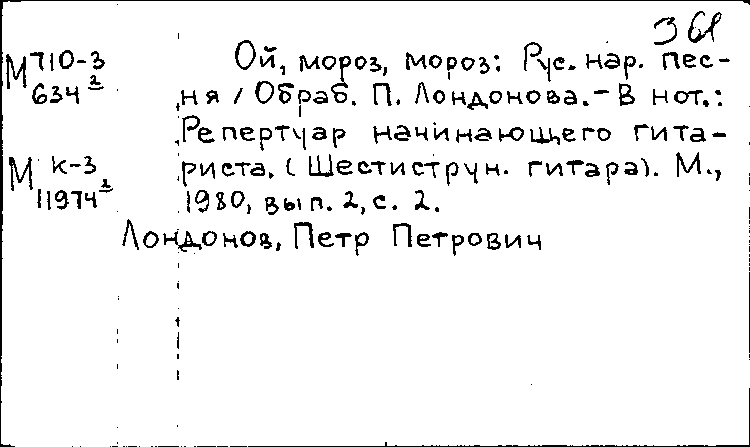 361
М 710-3
634²
Ой, мороз, мороз: Рус. нар. пес-
ня / Обраб. П. Лондонова. - В нот.:
Репертуар начинающего гита-
М К-3
11974²
риста. (Шестиструн. гитара). М.,
1980, вып. 2, с. 2.
Лондонов, Петр Петрович